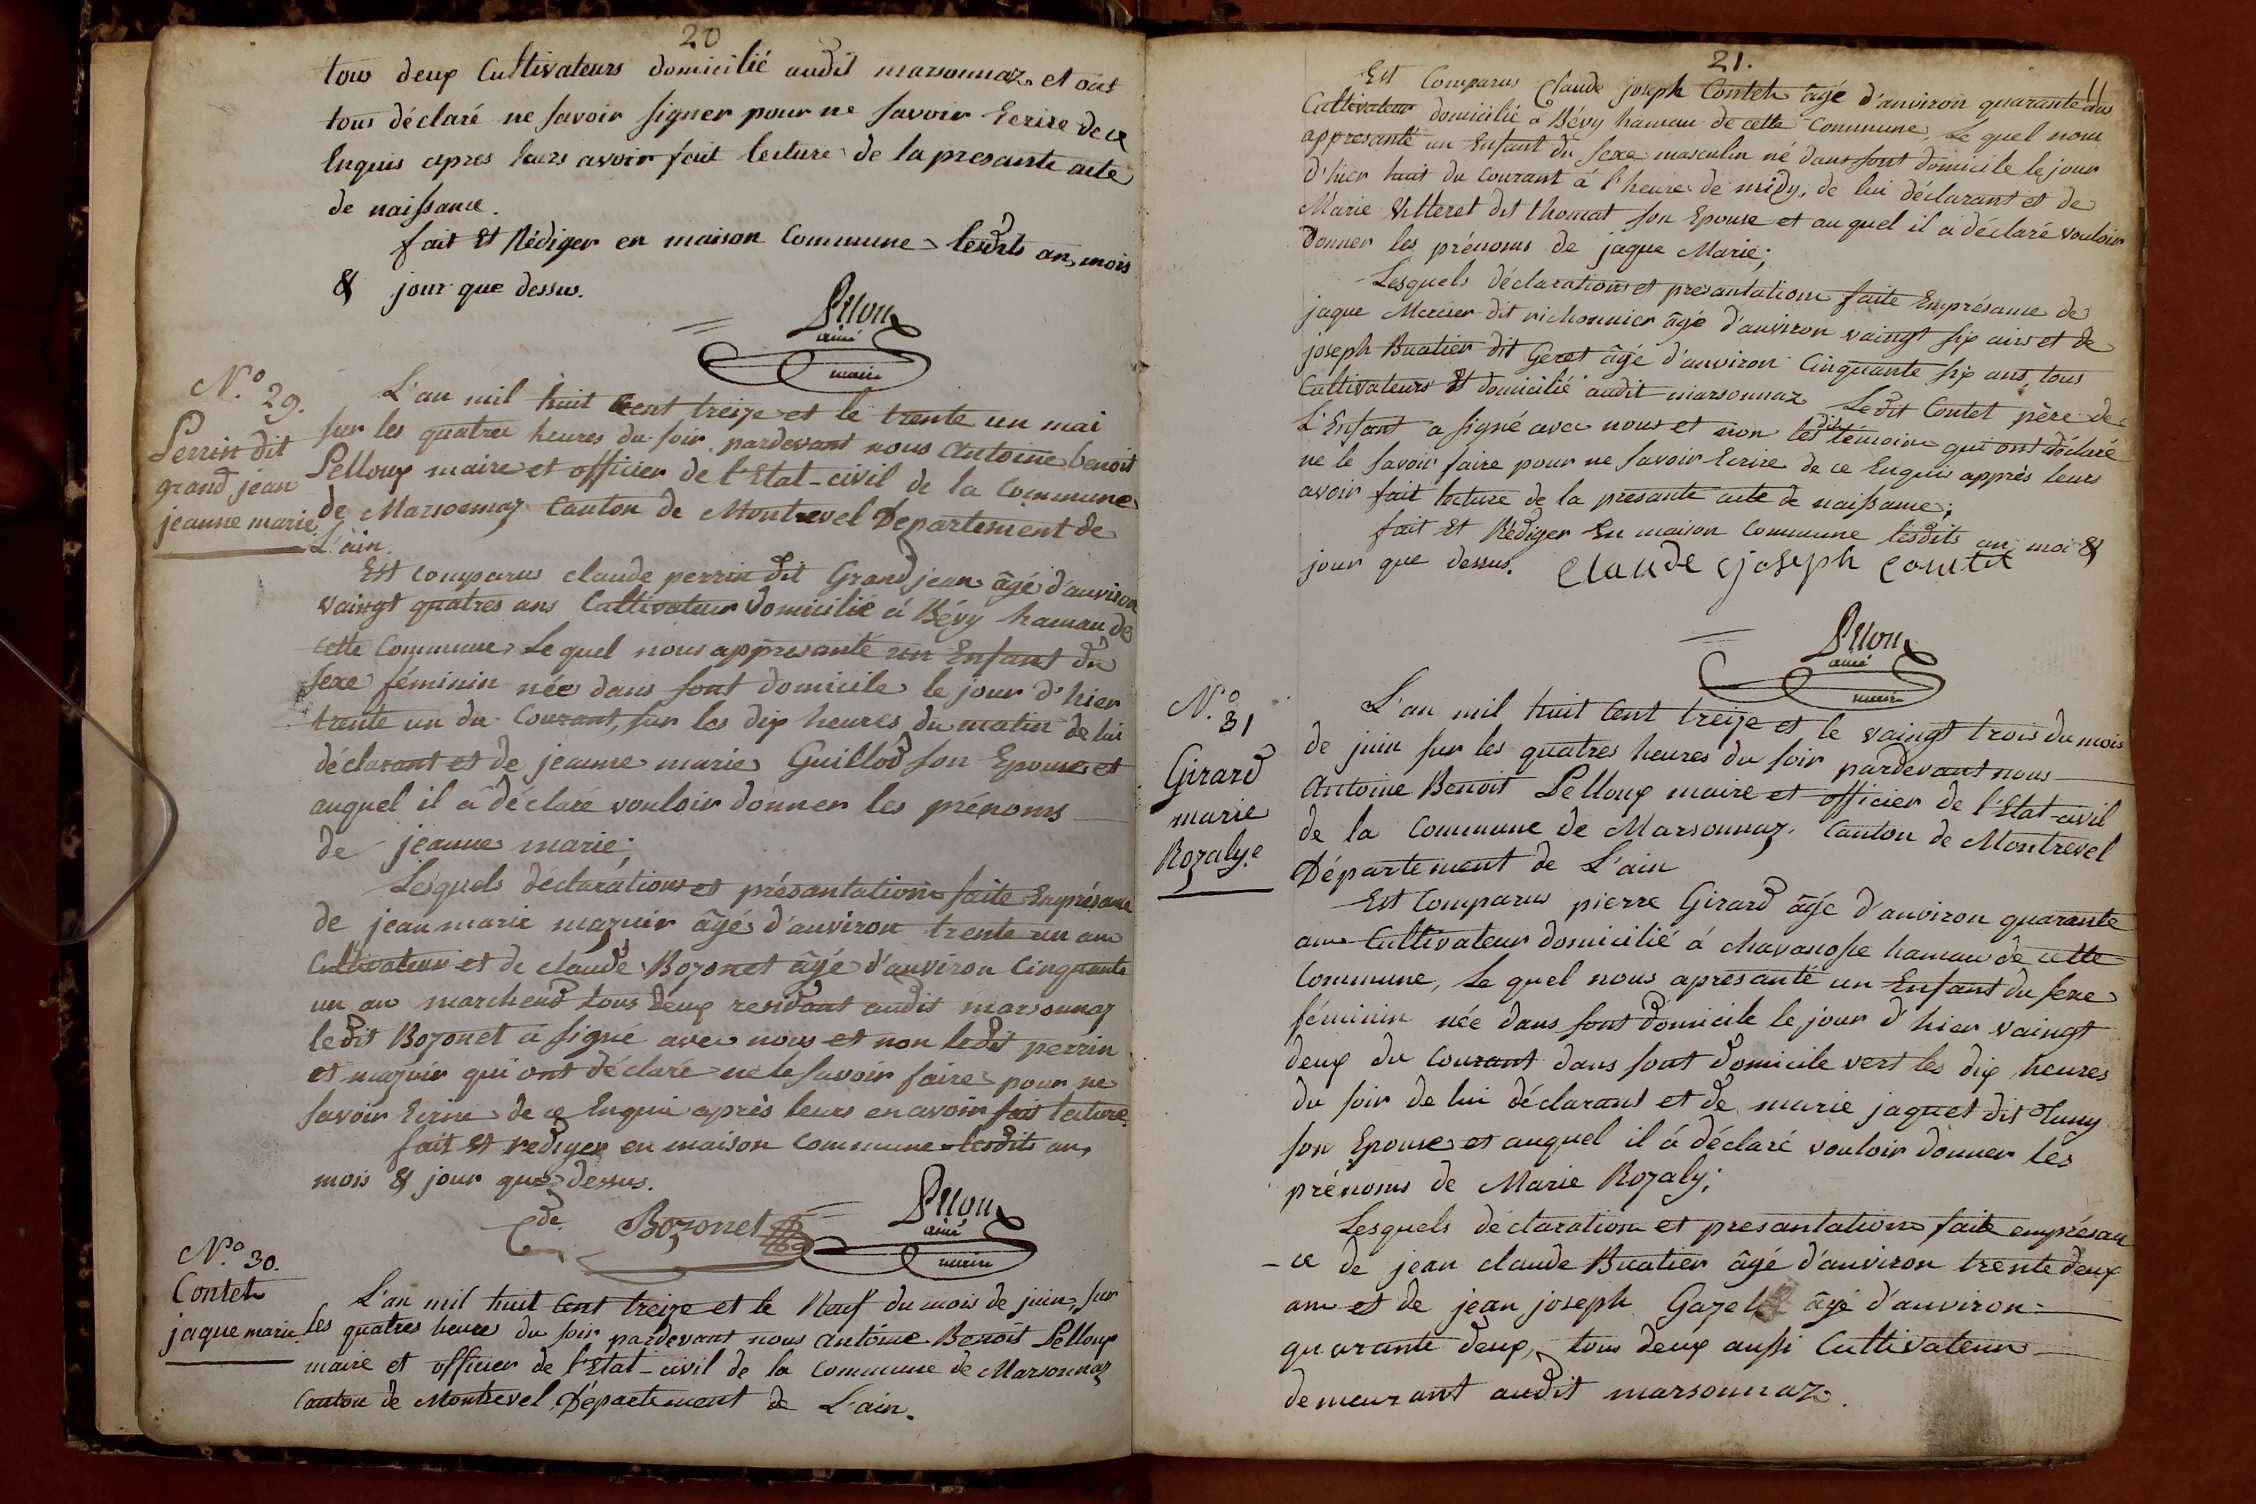 20
tous deux Cultivateurs domicilié audit marsonnaz et ont
tous déclaré ne savoir signer pour ne savoir Ecrire de ce
Enquis apres leurs avoir fait lecture de la presante acte
de naissance.
fait Et Rédiger en maison Commune lesdits an, mois
& jour que dessus.
Pelloux
ainé
maire
N.º 29.
Perrin dit
grand jean
jeanne marie
L'an mil huit Cent treize et le trente un mai
sur les quatres heures du soir pardevant nous Antoine benoit
Pelloux maire et officier de l'Etat-civil de la Commune
de Marsonnaz Canton de Montrevel Departement de
L'ain.
Est comparus claude perrin dit Grand jean âgé d'anviron
vaingt quatres ans Cultivateur domicilié á Bévy hamau de
cette Commune, Le quel nous appresanté un Enfant du
sexe féminin née dans sont domicile le jour d'hier
trante un du Courant, sur les dix heures du matin de lui
déclarant et de jeanne marie Guillod son Epouse et
auquel il á déclaré vouloir donner les prénoms
de jeanne marie;
Lesquels declarations et présantation faite Enprésance
de jean marie mazuir âgé d'anviron trente un an
Cultivateur et de claude Bozonet âgé d'anviron Cinquante
un an marchend tous deux residant audit marsonnaz
ledit Bozonet á signé avec nous et non ledit perrin
et mazuir qui ont déclaré ne le savoir faire pour ne
savoir Ecrire de ce Enquis après leurs en avoir fait lecture
fait Et rediger en maison Commune lesdits an,
mois & jour que dessus.
Cde Bozonet
Pelloux
ainé
maire
N.º 30.
Conteh
jaque marie
L'an mil huit Cent treize et le Neuf du mois de juin, sur
les quatres heures du soir pardevant nous antoine Benoit Pelloux
maire et officier de l'Etat-civil de la Commune de Marsonnaz
Canton de Montrevel, Département de L'ain.
21.
Est Comparus Claude joseph Conteh âgé d'anviron quarante ans
Cultivateur domicilié á Bévy hamau de cette Commune, Le quel nous
appresanté un Enfant du sexe masculin né dans sont domicile le jour
d'hier huit du Courant á l'heure de midy, de lui déclarant et de
Marie Vitteret dit thomat son Epouse et auquel il á déclaré vouloir
donner les prénoms de jaque Marie;
Lesquels déclarations et presantation faite Enprésance de
jaque Mercier dit richonnier âgé d'anviron vaingt six ans et de
joseph Buatier dit Geret âgé d'anviron Cinquante six ans, tous
Cultivateurs Et domicilié audit marsonnaz Ledit Contet père de
L'Enfant a signé avec nous et non lesdit témoins qui ont déclaré
ne le savoir faire pour ne savoir Ecrire de ce Enquis apprès leurs
avoir fait lecture de la presante acte de naissance;
fait Et Rédiger En maison Commune lesdits an, moi &
jour que dessus.
claude joseph contet
Pelloux
ainé
maire
N.º 31
Girard
marie
Rozalye
L'an mil huit Cent treize et le vaingt trois du mois
de juin sur les quatres heures du soir pardevant nous
Antoine Benoit Pelloux maire et officier de l'Etat-civil
de la Commune de Marsonnaz, Canton de Montrevel
Département de L'ain
Est Comparus pierre Girard âgé d'anviron quarante
ans Cultivateur domicilié á chavanosse hamau de cette
Commune, Le quel nous apresanté un Enfant du sexe
féminin née dans sont domicile le jour d'hier vaingt
deux du Courant dans sont domicile vert les dix heures
du soir de lui déclarant et de marie jaquet dit
son Epouse et auquel il á déclaré vouloir donner les
prénoms de Marie Rozaly;
Lesquels déclaration et presantation faite enprésan
-ce de jean claude Buatier âgé d'anviron trente deux
ans et de jean joseph âgé d'anviron
quarante deux, tous deux aussi Cultivateur
demeurant audit marsonnaz.